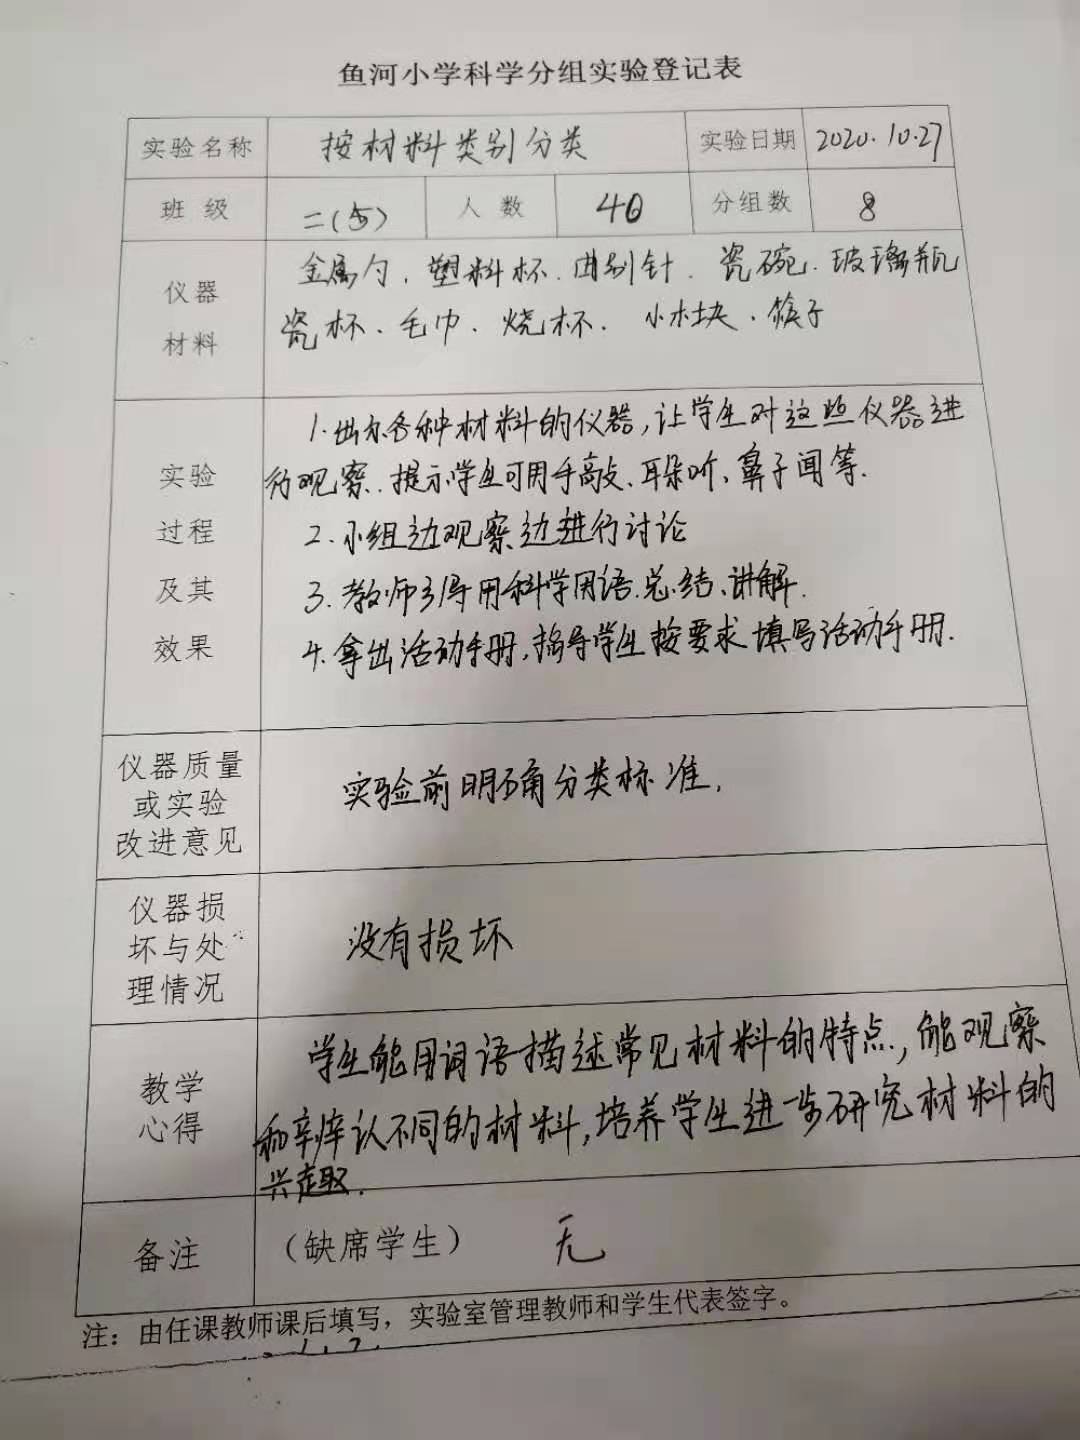 鱼河小学科学分组实验登记表
实验名称 按材料类别分类 实验日期 2020.10.27
班级 二(5) 人数 40 分组数 8
仪器
材料
金属勺、塑料杯、曲别针、瓷碗、玻璃瓶
瓷杯、毛巾、烧杯、小木块、筷子
实验
过程
及其
效果
1.出示各种材料的仪器,让学生对这些仪器进
行观察.提示学生可用手敲、耳朵听、鼻子闻等.
2.小组边观察边进行讨论
3.教师引导用科学用语.总结、讲解.
4.拿出活动手册,指导学生按要求填写活动手册.
仪器质量
或实验
改进意见
实验前明确分类标准.
仪器损
坏与处
理情况
没有损坏
教学
心得
学生能用词语描述常见材料的特点,能观察
和辛辨认不同的材料,培养学生进一步研究材料的
兴趣.
备注 (缺席学生) 无
注:由任课教师课后填写,实验室管理教师和学生代表签字。